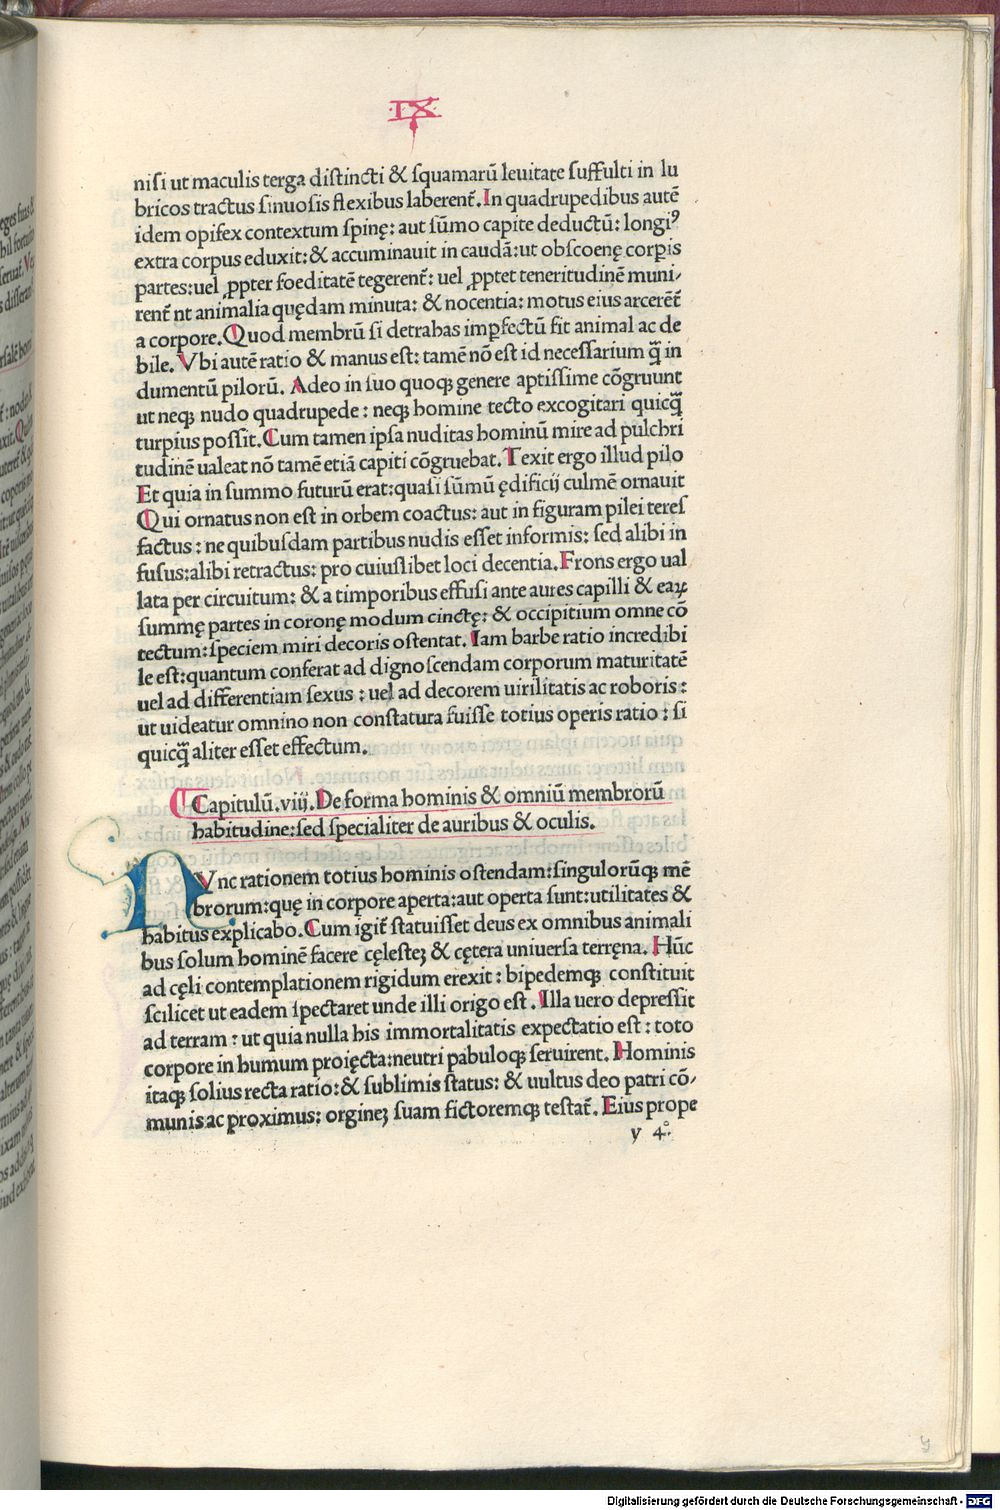 ·IX·
niſi ut maculis terga diſtincti & ſquamarū leuitate ſuffulti in lu
bricos tractus ſinuoſis flexibus laberent̄. In quadrupedibus autē
idem opifex contextum ſpinę: aut ſūmo capite deductū: longiꝰ
extra corpus eduxit: & accuminauit in caudā: ut obſcoenę corꝑis
partes: uel ꝓpter foeditatē tegerent̄: uel ꝓptet teneritudinē muni-
rent̄ nt animalia quędam minuta: & nocentia: motus eius arcerēt̄
a corpore. Quod membrū ſi detrabas imꝑfectū fit animal ac de
bile. Vbi autē ratio & manus eſt: tamē nō eſt id neceſſarium q̄ȝ in
dumentū pilorū. Adeo in ſuo quoqꝫ genere aptiſſime cōgruunt
ut neqꝫ nudo quadrupede: neqꝫ homine tecto excogitari quicq̄ȝ
turpius poſſit. Cum tamen ipſa nuditas hominū mire ad pulchri
tudinē ualeat nō tamē etiā capiti cōgruebat. Texit ergo illud pilo
Et quia in ſummo futurū erat: quaſi ſūmū ędificij culmē ornauit
Qui ornatus non eſt in orbem coactus: aut in figuram pilei tereſ
factus: ne quibuſdam partibus nudis eſſet informis: ſed alibi in
fuſus: alibi retractus: pro cuiuſlibet loci decentia. Frons ergo ual
lata per circuitum: & a timporibus effuſi ante aures capilli & eaꝝ
ſummę partes in coronę modum cinctę: & occipitium omne cō
tectum: ſpeciem miri decoris oſtentat. Iam barbe ratio incredibi
le eſt: quantum conferat ad dignoſcendam corporum maturitatē
uel ad differentiam ſexus: uel ad decorem uirilitatis ac roboris:
ut uideatur omnino non conſtatura fuiſſe totius operis ratio: ſi
quicq̄ȝ aliter eſſet effectum.
Capitulū.viij. De forma hominis & omniū membrorū
habitudine: ſed ſpecialiter de auribus & oculis.
NVnc rationem totius hominis oſtendam: ſingulorūqꝫ mē
brorum: quę in corpore aperta: aut operta ſunt: utilitates &
habitus explicabo. Cum igit̄ ſtatuiſſet deus ex omnibus animali
bus ſolum hominē facere cęleſteȝ & cętera uniuerſa terręna. Hūc
ad cęli contemplationem rigidum erexit: bipedemqꝫ conſtituit
ſcilicet ut eadem ſpectaret unde illi origo eſt. Illa uero depreſſit
ad terram: ut quia nulla his immortalitatis expectatio eſt: toto
corpore in humum proięcta: uentri pabuloqꝫ ſeruirent. Hominis
itaqꝫ ſolius recta ratio: & ſublimis ſtatus: & uultus deo patri cō-
munis ac proximus: orgineȝ ſuam fictoremqꝫ teſtat̄. Eius prope
y 4°
Digitalisierung gefördert durch die Deutsche Forschungsgemeinschaft - DFG